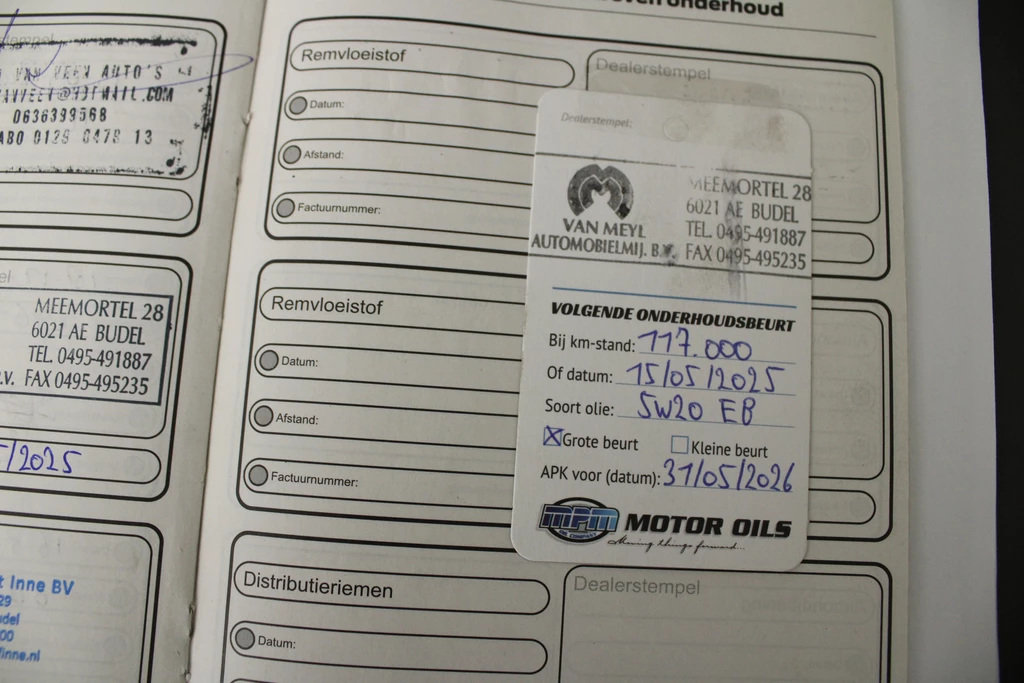 VAN VEEN AUTO'S
0636399568
Dealerstempel
MEEMORTEL 28
6021 AE BUDEL
TEL. 0495-491887
FAX 0495-495235
/2025
Inne BV
29
00
onderhoud
Remvloeistof
Dealerstempel
Datum:
Afstand:
Factuurnummer:
Remvloeistof
Datum:
Afstand:
Factuurnummer:
Distributieriemen
Dealerstempel
Datum:
Dealerstempel:
VAN MEYL
AUTOMOBIELMIJ. B.V.
MEEMORTEL 28
6021 AE BUDEL
TEL. 0495-491887
FAX 0495-495235
VOLGENDE ONDERHOUDSBEURT
Bij km-stand: 117.000
Of datum: 15/05/2025
Soort olie: 5W20 EB
Grote beurt Kleine beurt
APK voor (datum): 31/05/2026
MPM MOTOR OILS
OIL COMPANY
Moving things forward...